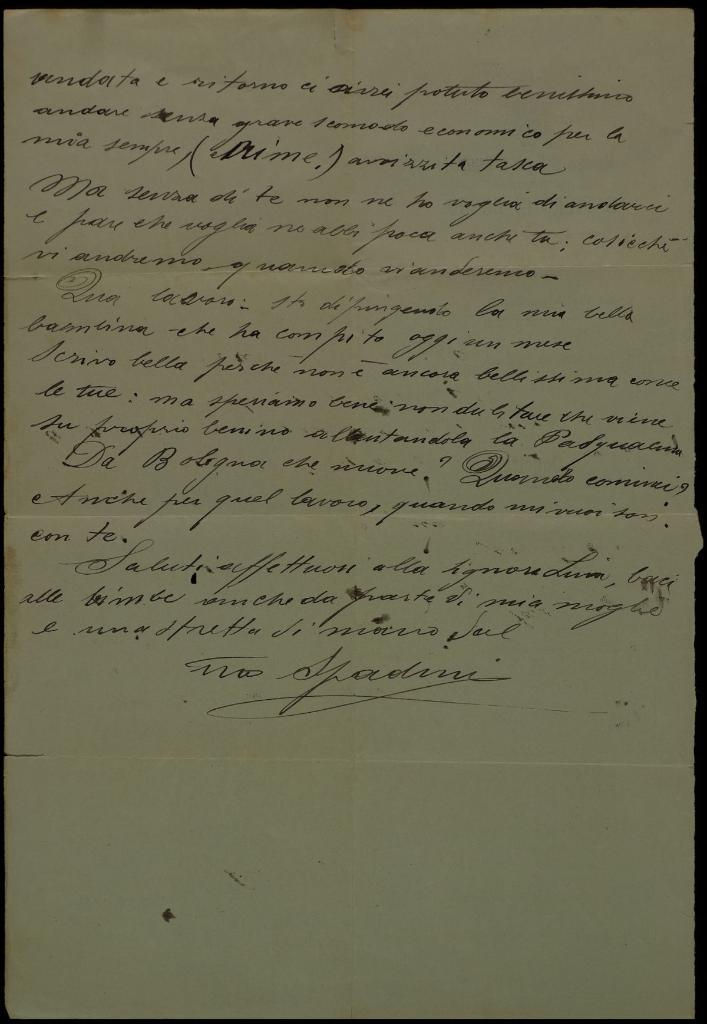 andata e ritorno ci avrei potuto benissimo
andare senza grave scomodo economico per la
mia sempre, (ahime!) avvizzita tasca
Ma senza di te non ne ho voglia di andarci
e pare che voglia ne abbi poca anche tu; cosicchè
vi andremo quando vi anderemo –
Qua lavoro: sto dipingendo la mia bella
bambina che ha compito oggi un mese
Scrivo bella perchè non è ancora bellissima come
le tue: ma speriamo bene: non dubitare che viene
su proprio benino allattandola la Pasqualina
Da Bologna che nuove? Quando cominci?
Anche per quel lavoro, quando mi vuoi son
con te.
Saluti affettuosi alla signora Lina, baci
alle bimbe anche da parte di mia moglie
e una stretta di mano dal
tuo Spadini